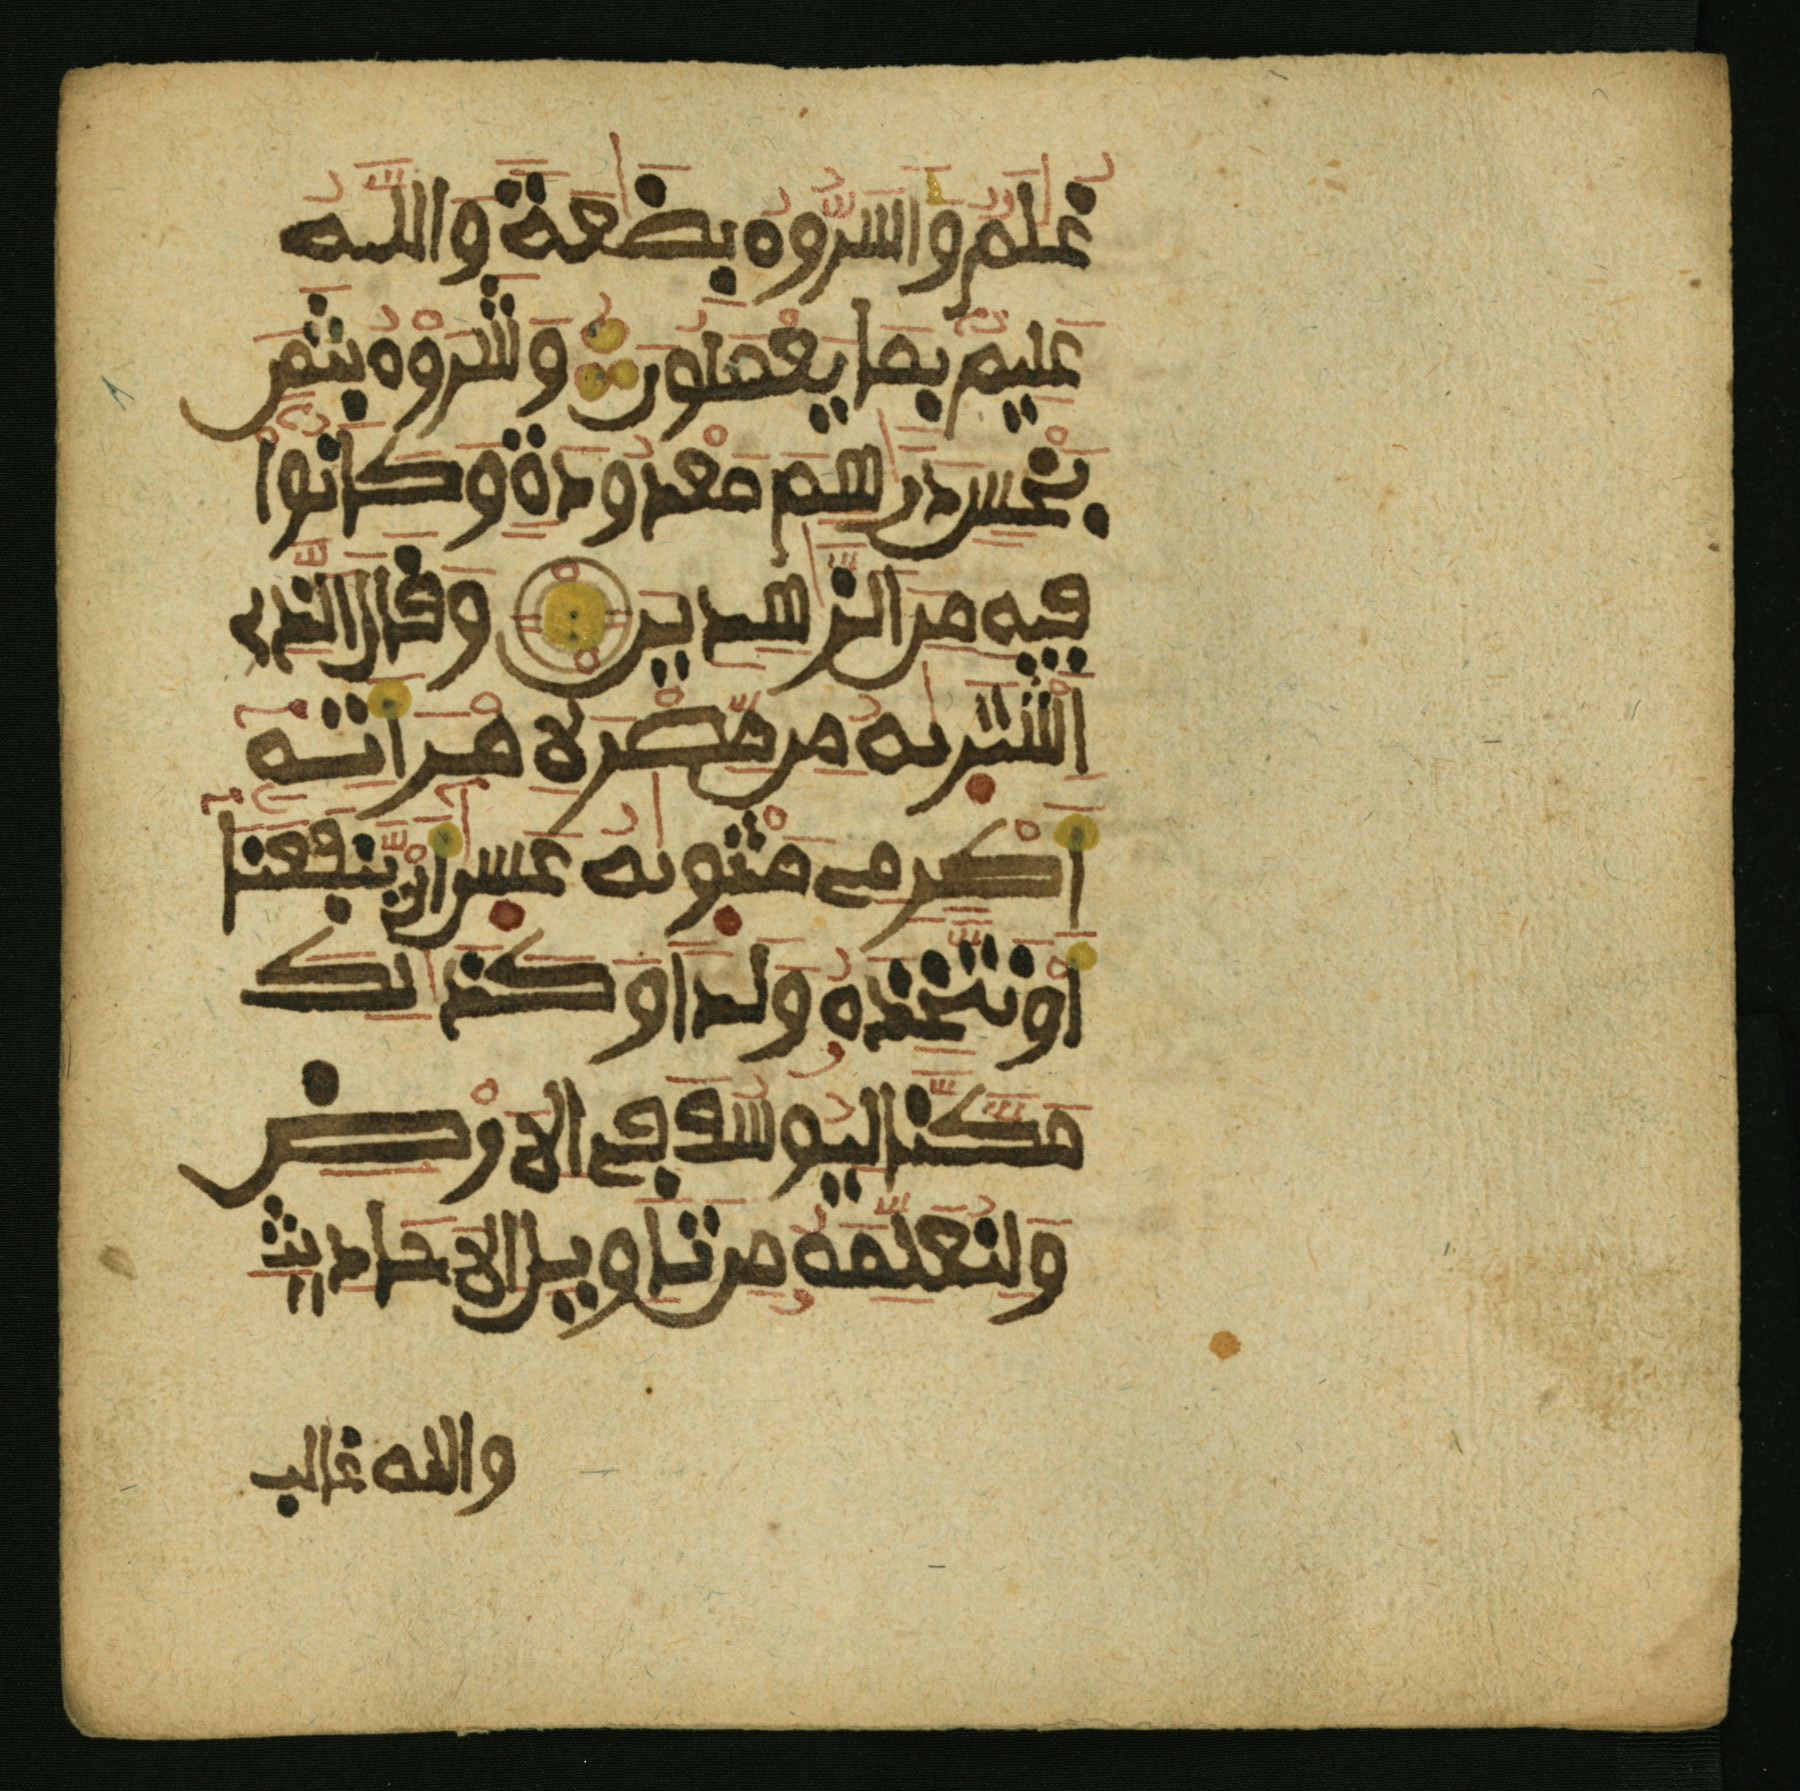 غلم واسروه بضعة والله
عليم بما يعملون وشروه بثمن
بخس درهم معدودة وكانوا
فيه من الزهدين وقال الذي
اشتريه من مصر لامراته
اكرمي مثويه عسى ان ينفعنا
او نتخذه ولدا وكذلك
مكنا ليوسف في الارض
ولنعلمه من تاويل الاحاديث
والله غالب